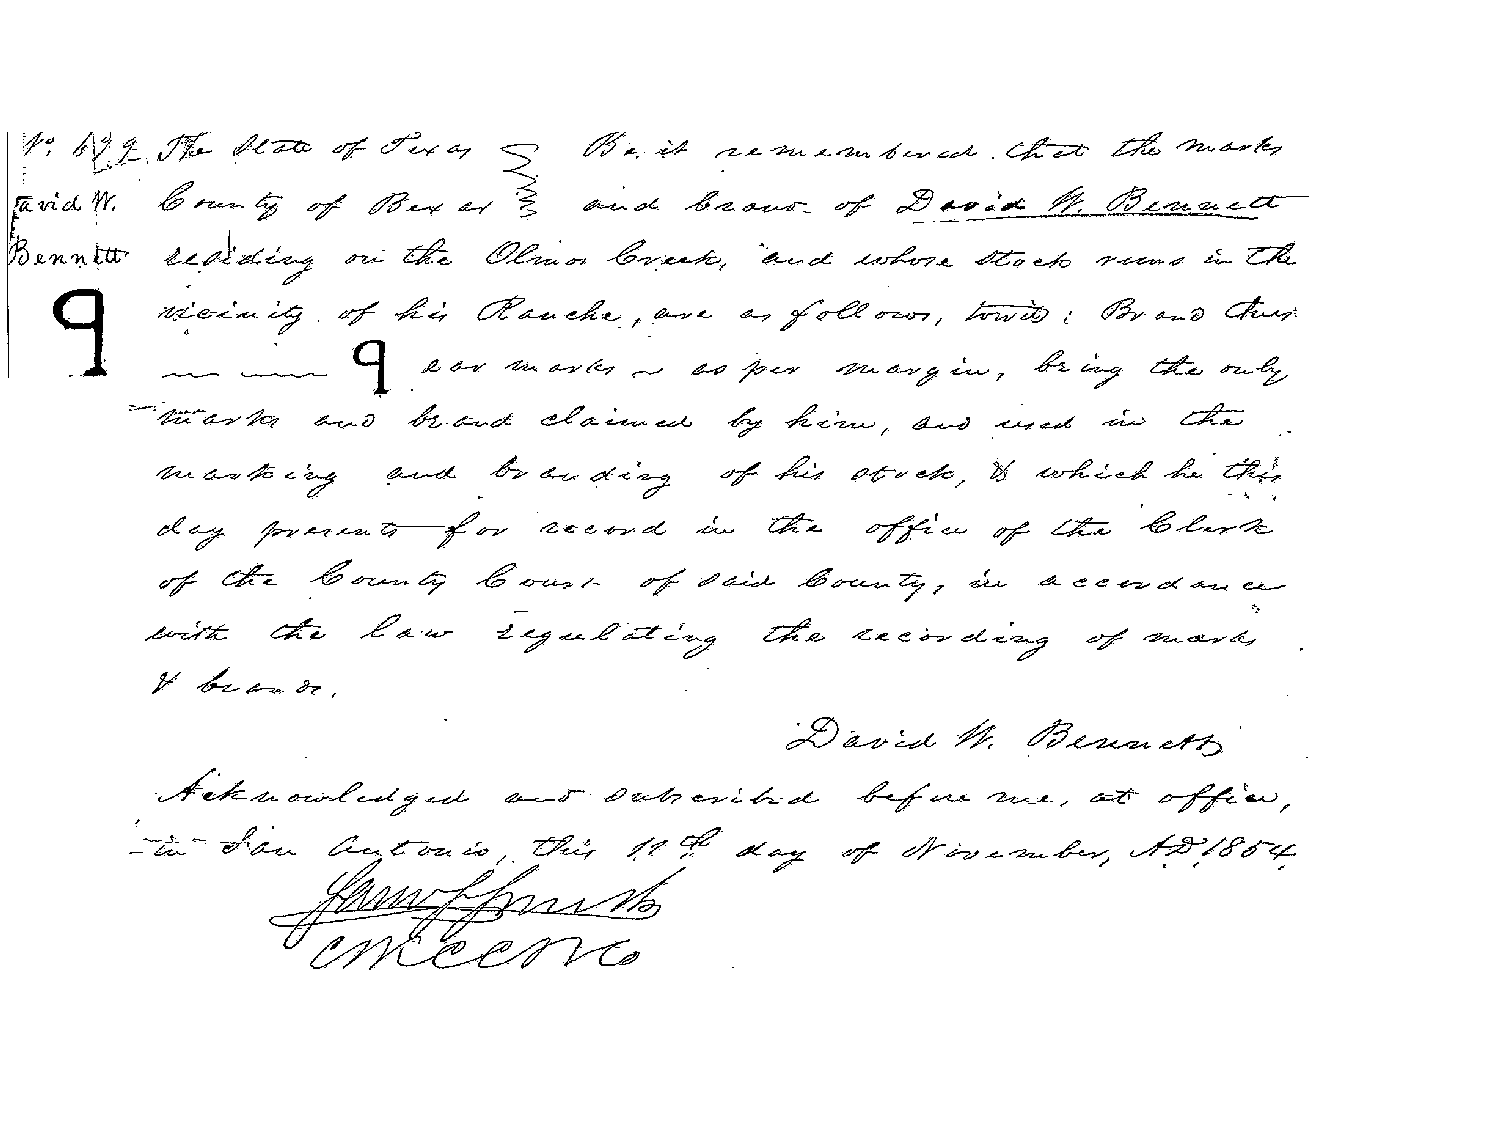 No. 679. The State of Texas Be it remembered that the marks
David W. County of Bexar and brand of David W. Bennett
Bennett residing on the Olmos Creek, and whose stock runs in the
vicinity of his Ranche, are as follows, towit: Brand thus
q q ear marks as per margin, being the only
marks and brand claimed by him, and used in the
marking and branding of his stock, & which he this
day presents for record in the office of the Clerk
of the County Court of said County, in accordance
with the law regulating the recording of marks
& brands.
David W. Bennett
Acknowledged and subscribed before me, at office,
in San Antonio, this 11th day of November, AD 1854.